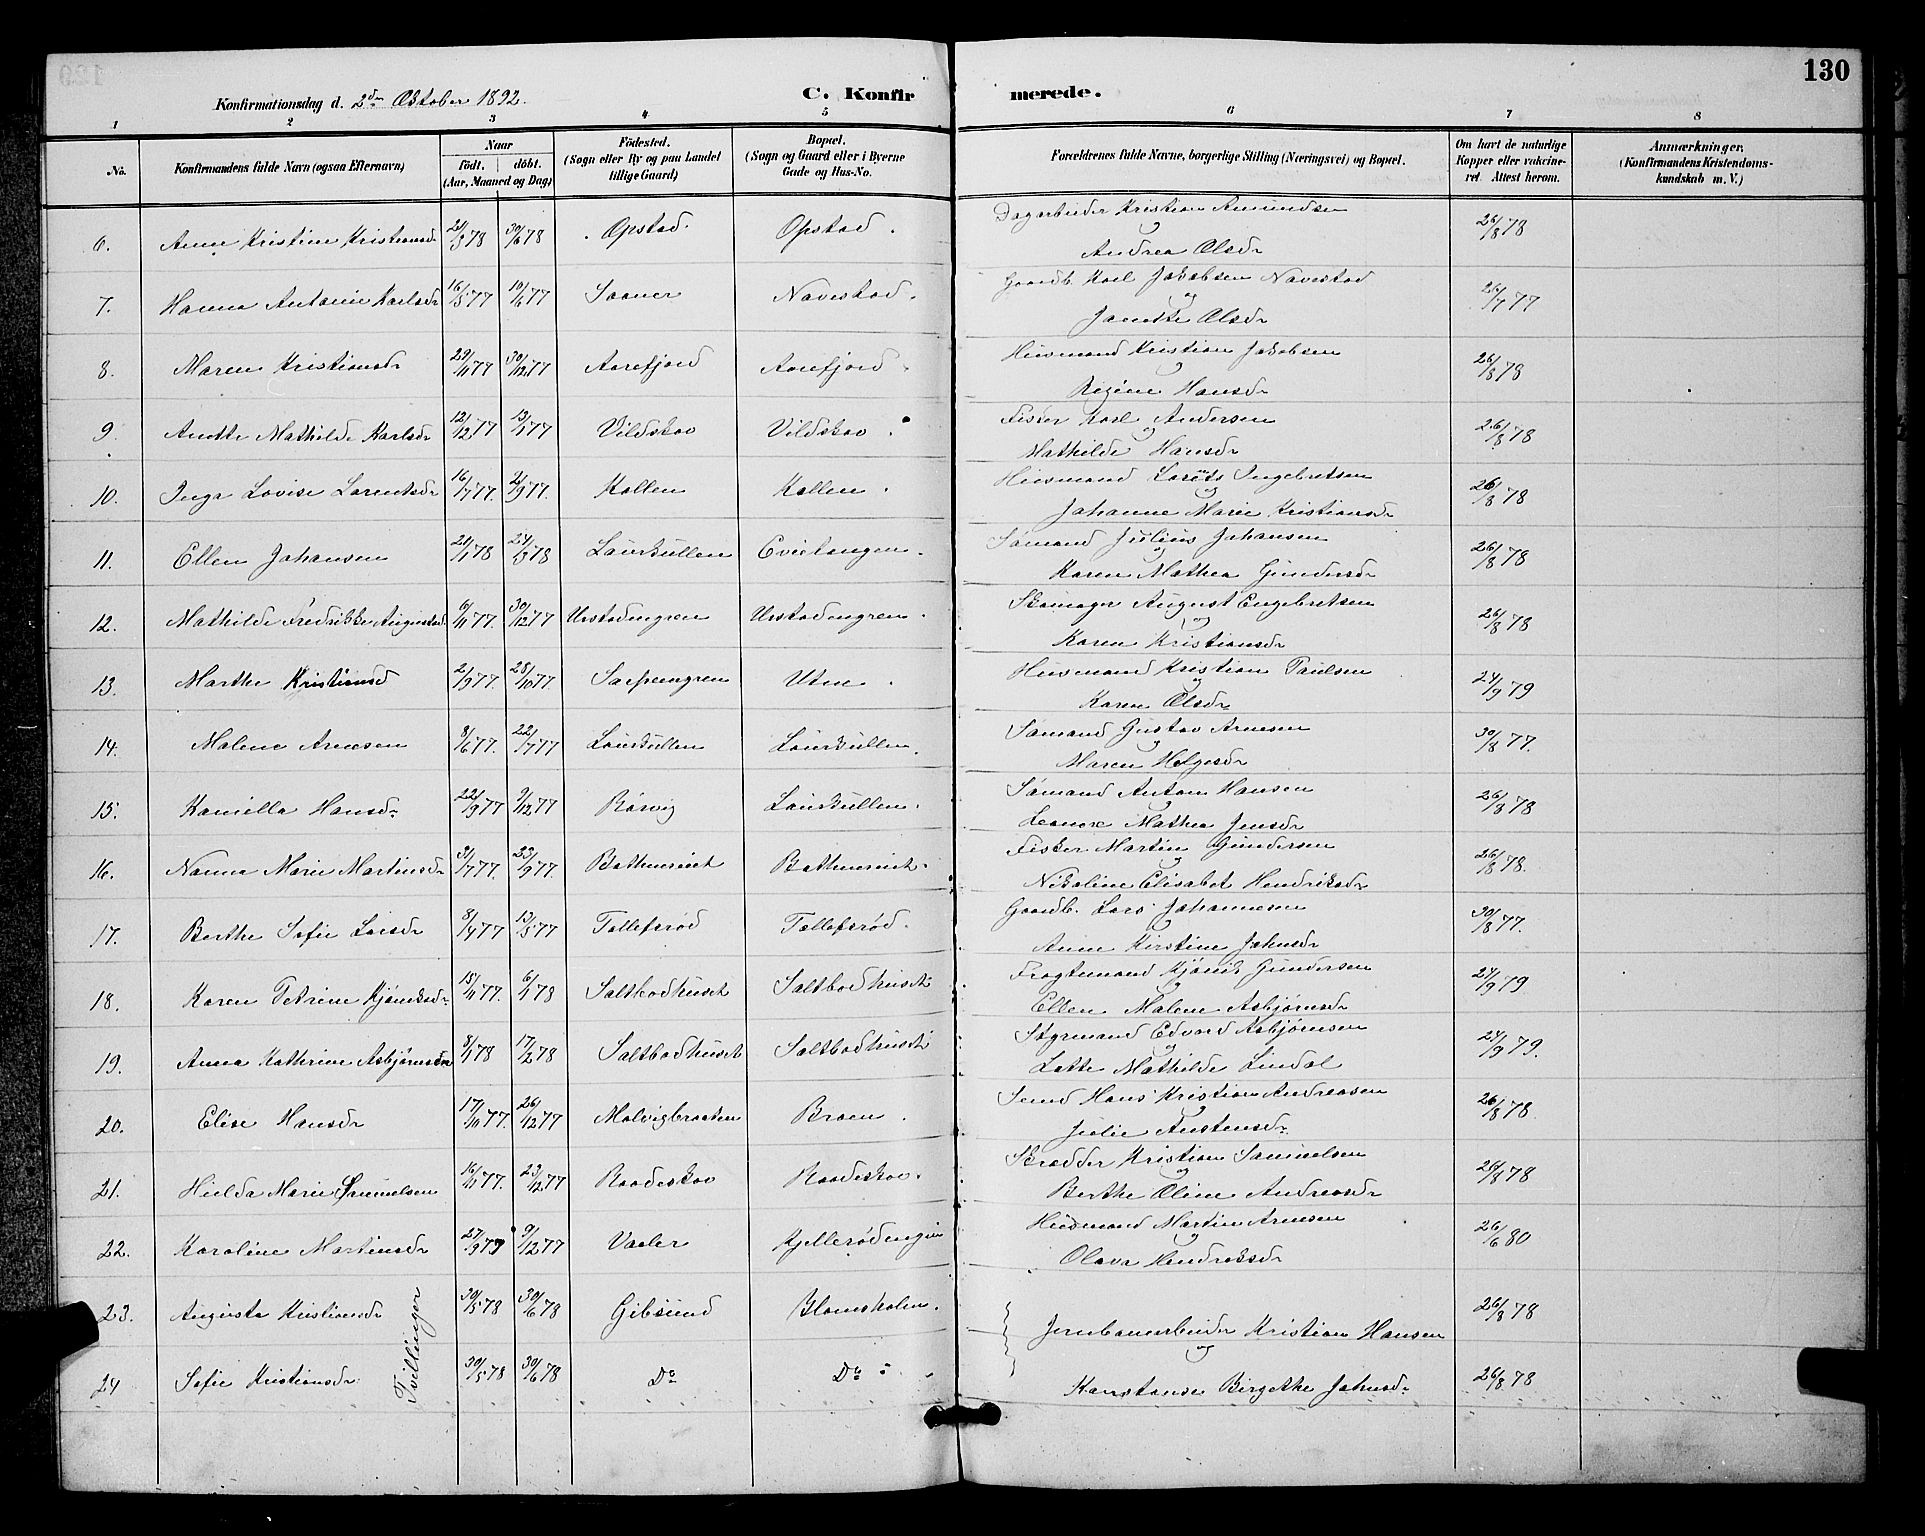 130
Konfirmationsdag d. 2den Oktober 1892.
C. Konfirmerede.
1 2 3 4 5 6 7 8
No. Konfirmandens fulde Navn (ogsaa Efternavn) Naar födt. döbt. (Aar, Maaned og Dag) Födested. (Sogn eller By og paa Landet tillige Gaard) Bopæl. (Sogn og Gaard eller i Byerne Gade og Hus-No. Forældrenes fulde Navne, borgerlige Stilling (Næringsvei) og Bopæl. Om havt de naturlige Kopper eller vakcineret. Attest herom. Anmærkninger. (Konfirmandens Kristendomskundskab m. V.)
6. Anne Kristine Kristiansdr 21/3 78 30/6 78 Opstad Opstad. Dagarbeider Kristian Amundsen og Andrea Olsdr 26/8 78
7. Hanna Antonie Karlsdr 16/5 77 10/6 77 Saaner Navestad. Gaardb. Karl Jakobsen Navestad og Janette Olsdr 26/7 77
8. Maren Kristiansdr 29/11 77 30/12 77 Aarefjord Aarefjord Husmand Kristian Jakobsen og Regine Hansdr 26/8 78
9. Anette Mathilde Karlsdr 12/12 77 13/1 77 Vildskov Vildskov. Fisker Karl Andersen og Mathilde Hansdr 26/8 78
10. Inga Lovise Lorentsdr 16/7 77. 2/9 77. Kollen Kollen. Husmand Lorents Ingebretsen og Johanne Marie Kristiansdr 26/8 78
11. Ellen Johansen 21/1 78 24/3 78 Laurkullen Evjetangen. Sømand Julius Johansen og Karen Mathea Gundersdr 26/8 78
12. Mathilde Fredrikke Augustsdr 6/11 77. 30/12 77 Urstadengren Urstadengren. Skomager August Engebretsen og Karen Kristiansdr 26/8 78
13. Marthe Kristiansd 2/9 77. 28/10 77. Sarpengren Uten. Husmand Kristian Paulsen og Karen Olsdr 24/9 79
14. Malene Arnesen 8/6 77. 22/7 77 Laurkullen Laurkullen. Sømand Gustav Arnesen og Maren Helgesdr 30/8 77.
15. Kamilla Hansdr. 22/9 77 9/12 77 Rørvig Laurkullen. Sømand Anton Hansen og Leonore Mathea Jensdr 26/8 78
16. Nanna Marie Martinsdr 31/7 77. 23/9 77. Bottenrivet Bottenrivet. Fisker Martin Gundersen og Nikoline Elisabet Hendriksdr 26/8 78.
17. Berthe Sofie Larsdr 8/4 77 13/5 77 Tollefsrød Tollefsrød. Gaardb. Lars Johannesen og Anne Kirstine Johnsdr 30/8 77.
18. Karen Petrine Kjøniksdr 15/11 77. 6/1 78 Saltbodhuset Saltbodhuset Fragtemand Kjønik Gundersen og Ellen Malene Asbjørnsdr 24/9 79
19. Anna Kathrine Asbjørnsdr 8/1 78 17/2 78 Saltbodhuset Saltbodhuset Styrmand Edvard Asbjørnsen og Lotte Mathilde Lindal 24/9 79.
20. Elise Hansdr 17/10 77. 26/12 77 Molvigbraaten Braen. Hans Kristian Andreasen og Julie Austensdr. 26/8 78.
21. Hilda Marie Samuelsen 16/11 77. 23/12 77 Raadeskov Raadeskov. Skrædder Kristian Samuelsen og Berthe Oline Andreasdr 26/8 78
22. Karoline Martinsdr 27/9 77 9/12 77 Vaaler Kjellerødengen Husmand Martin Arnesen og Olava Hendriksdr 26/6 80
23. Augusta Kristiansdr 30/5 78 30/6 78 Gibsund Blomsholm. Jernbanearbeider Kristian Hansen 26/8 78
Tvillinger
24 Sofie Kristiansdr. 30/5 78 30/6 78 Do Do og Konstanse Birgethe Johnsdr 26/8 78